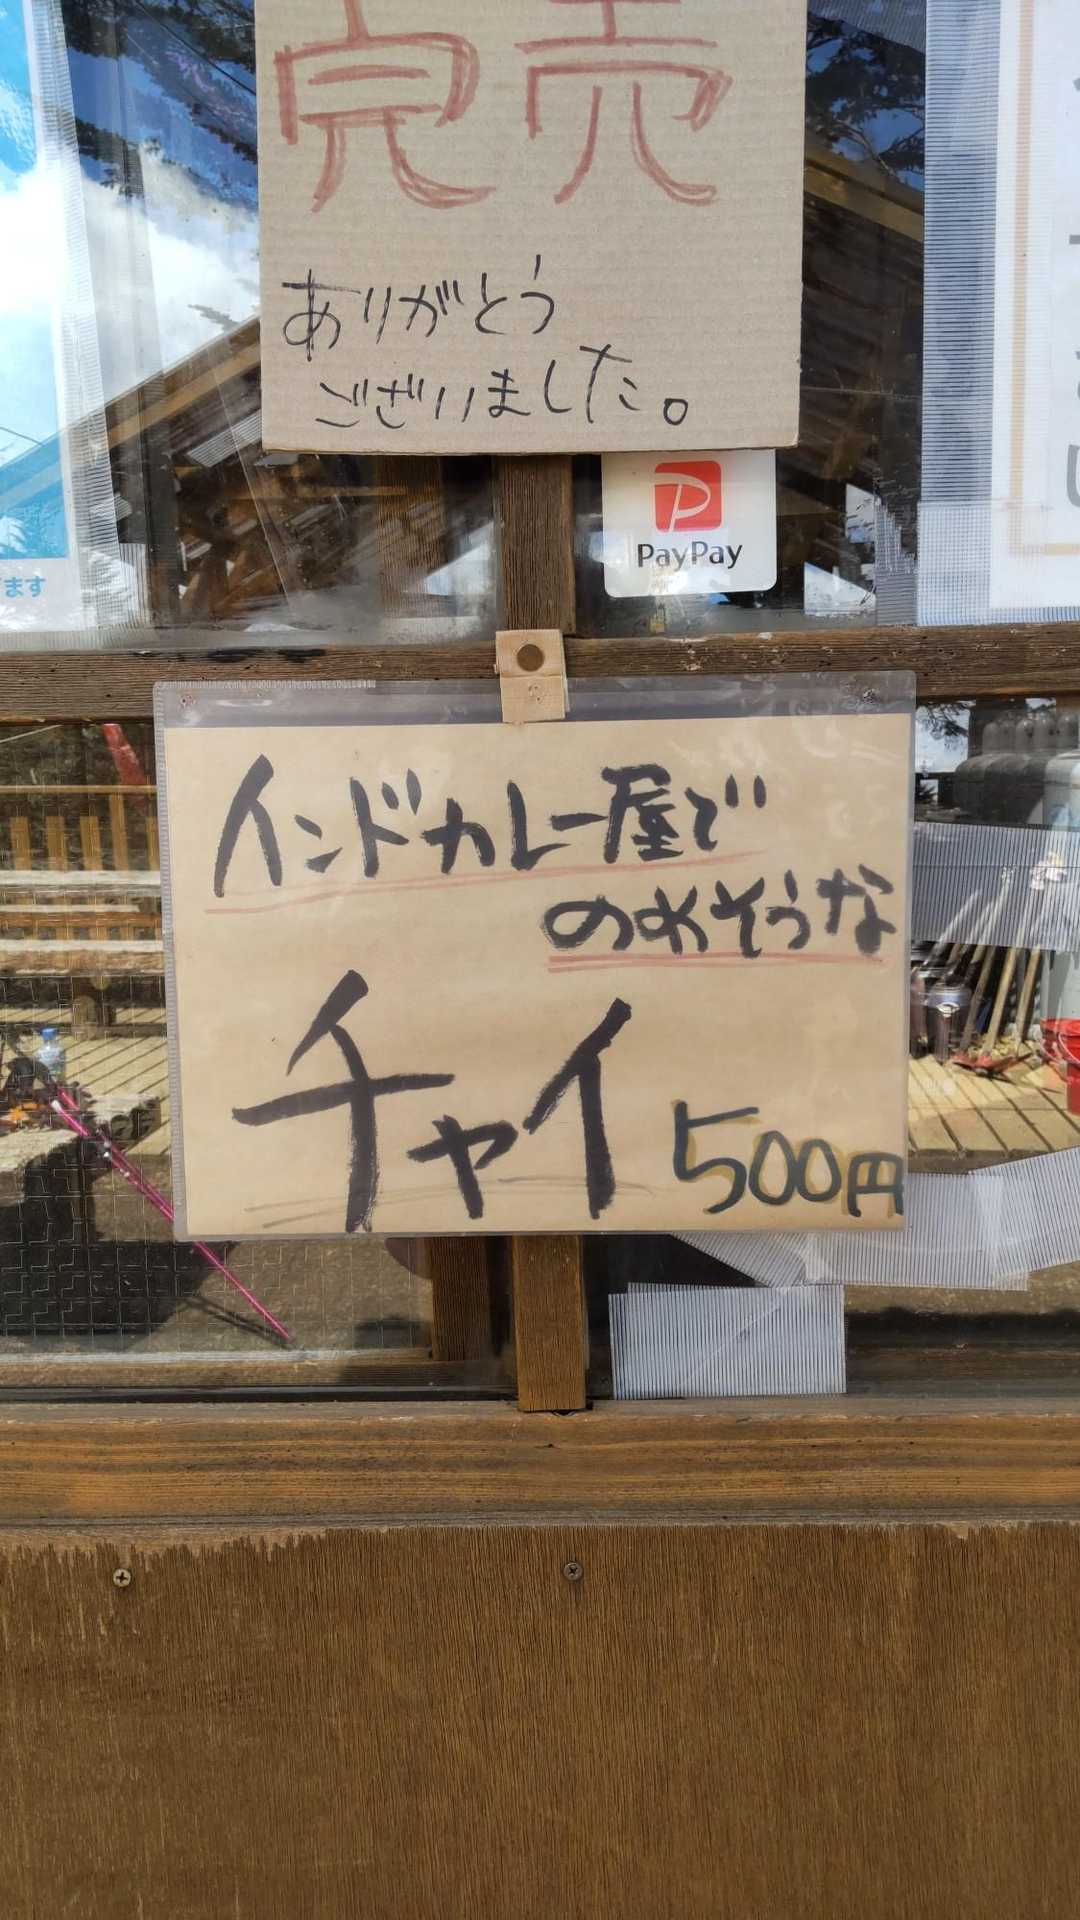 完売
ありがとう
ございました。
PayPay
ます
インドカレー屋で
のめそうな
チャイ 500円